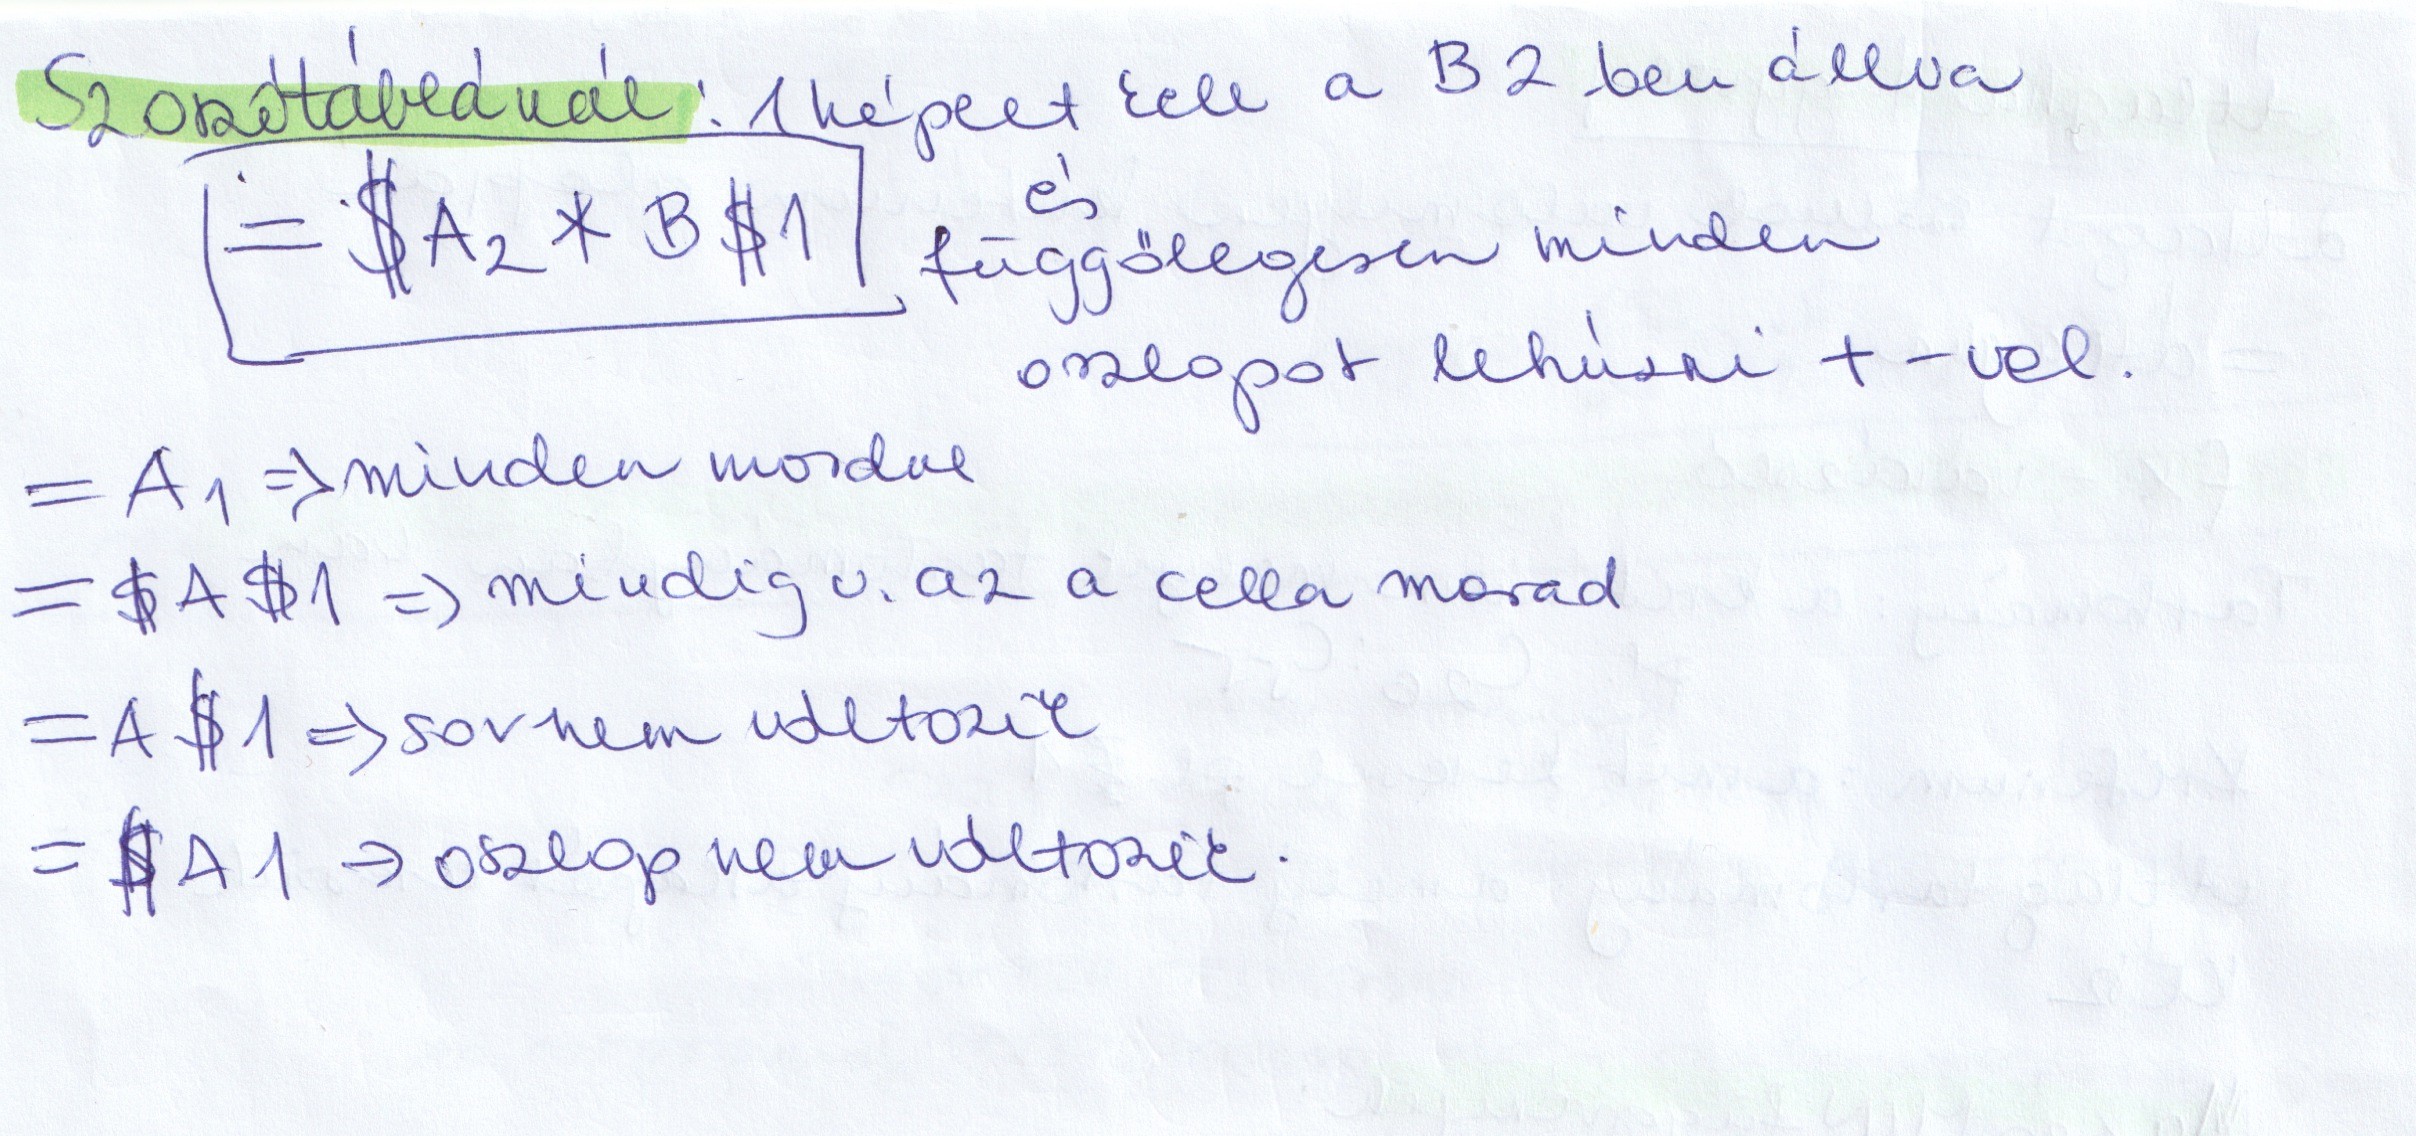 Szorzótáblánál: 1 képlet kell a B2 ben állva
= $A2 * B$1 és
függőlegesen minden
oszlopot lehúzni + -vel.
= A1 => minden mozdul
= $A$1 => mindig u. az a cella marad
= A$1 => sor nem változik
= $A1 -> oszlop nem változik.